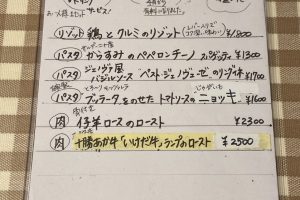 お一人様1セット サービス!
リゾット 鶏とクルミのリゾット ¥1300
パスタ からすみのペペロンチーノ スパゲッティ ¥1800
ジェノヴァ風
パスタ バジルソース ペストジェノヴェーゼのリングイネ ¥1700
じゃがいも
パスタ ブッラータをのせた トマトソースのニョッキ ¥1600
肉 仔羊ロースのロースト ¥2300
肉 十勝あか牛「いけだ牛」ランプのロースト ¥2500